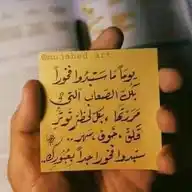 @mujahed_art
يومًا ما ستبدوا فخورًا
بتلك الصعاب التي
مررتَ بها، بكل لحظة توتّر
قلق، خوف، سهر..
ستبدوا فخورًا جدًا بعبورك.